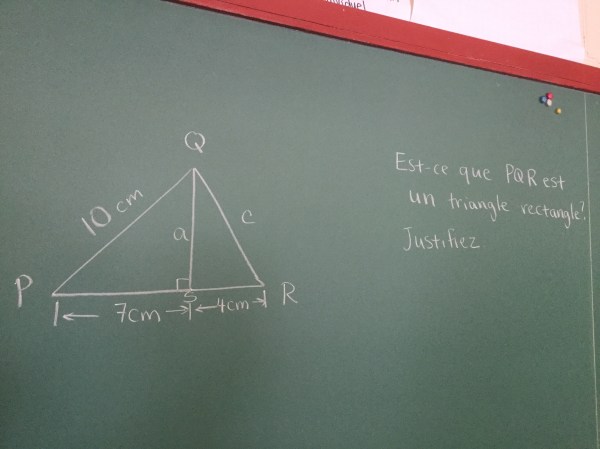 Q
10 cm
a
c
P
S
R
7cm
4cm
Est-ce que PQR est
un triangle rectangle?
Justifiez